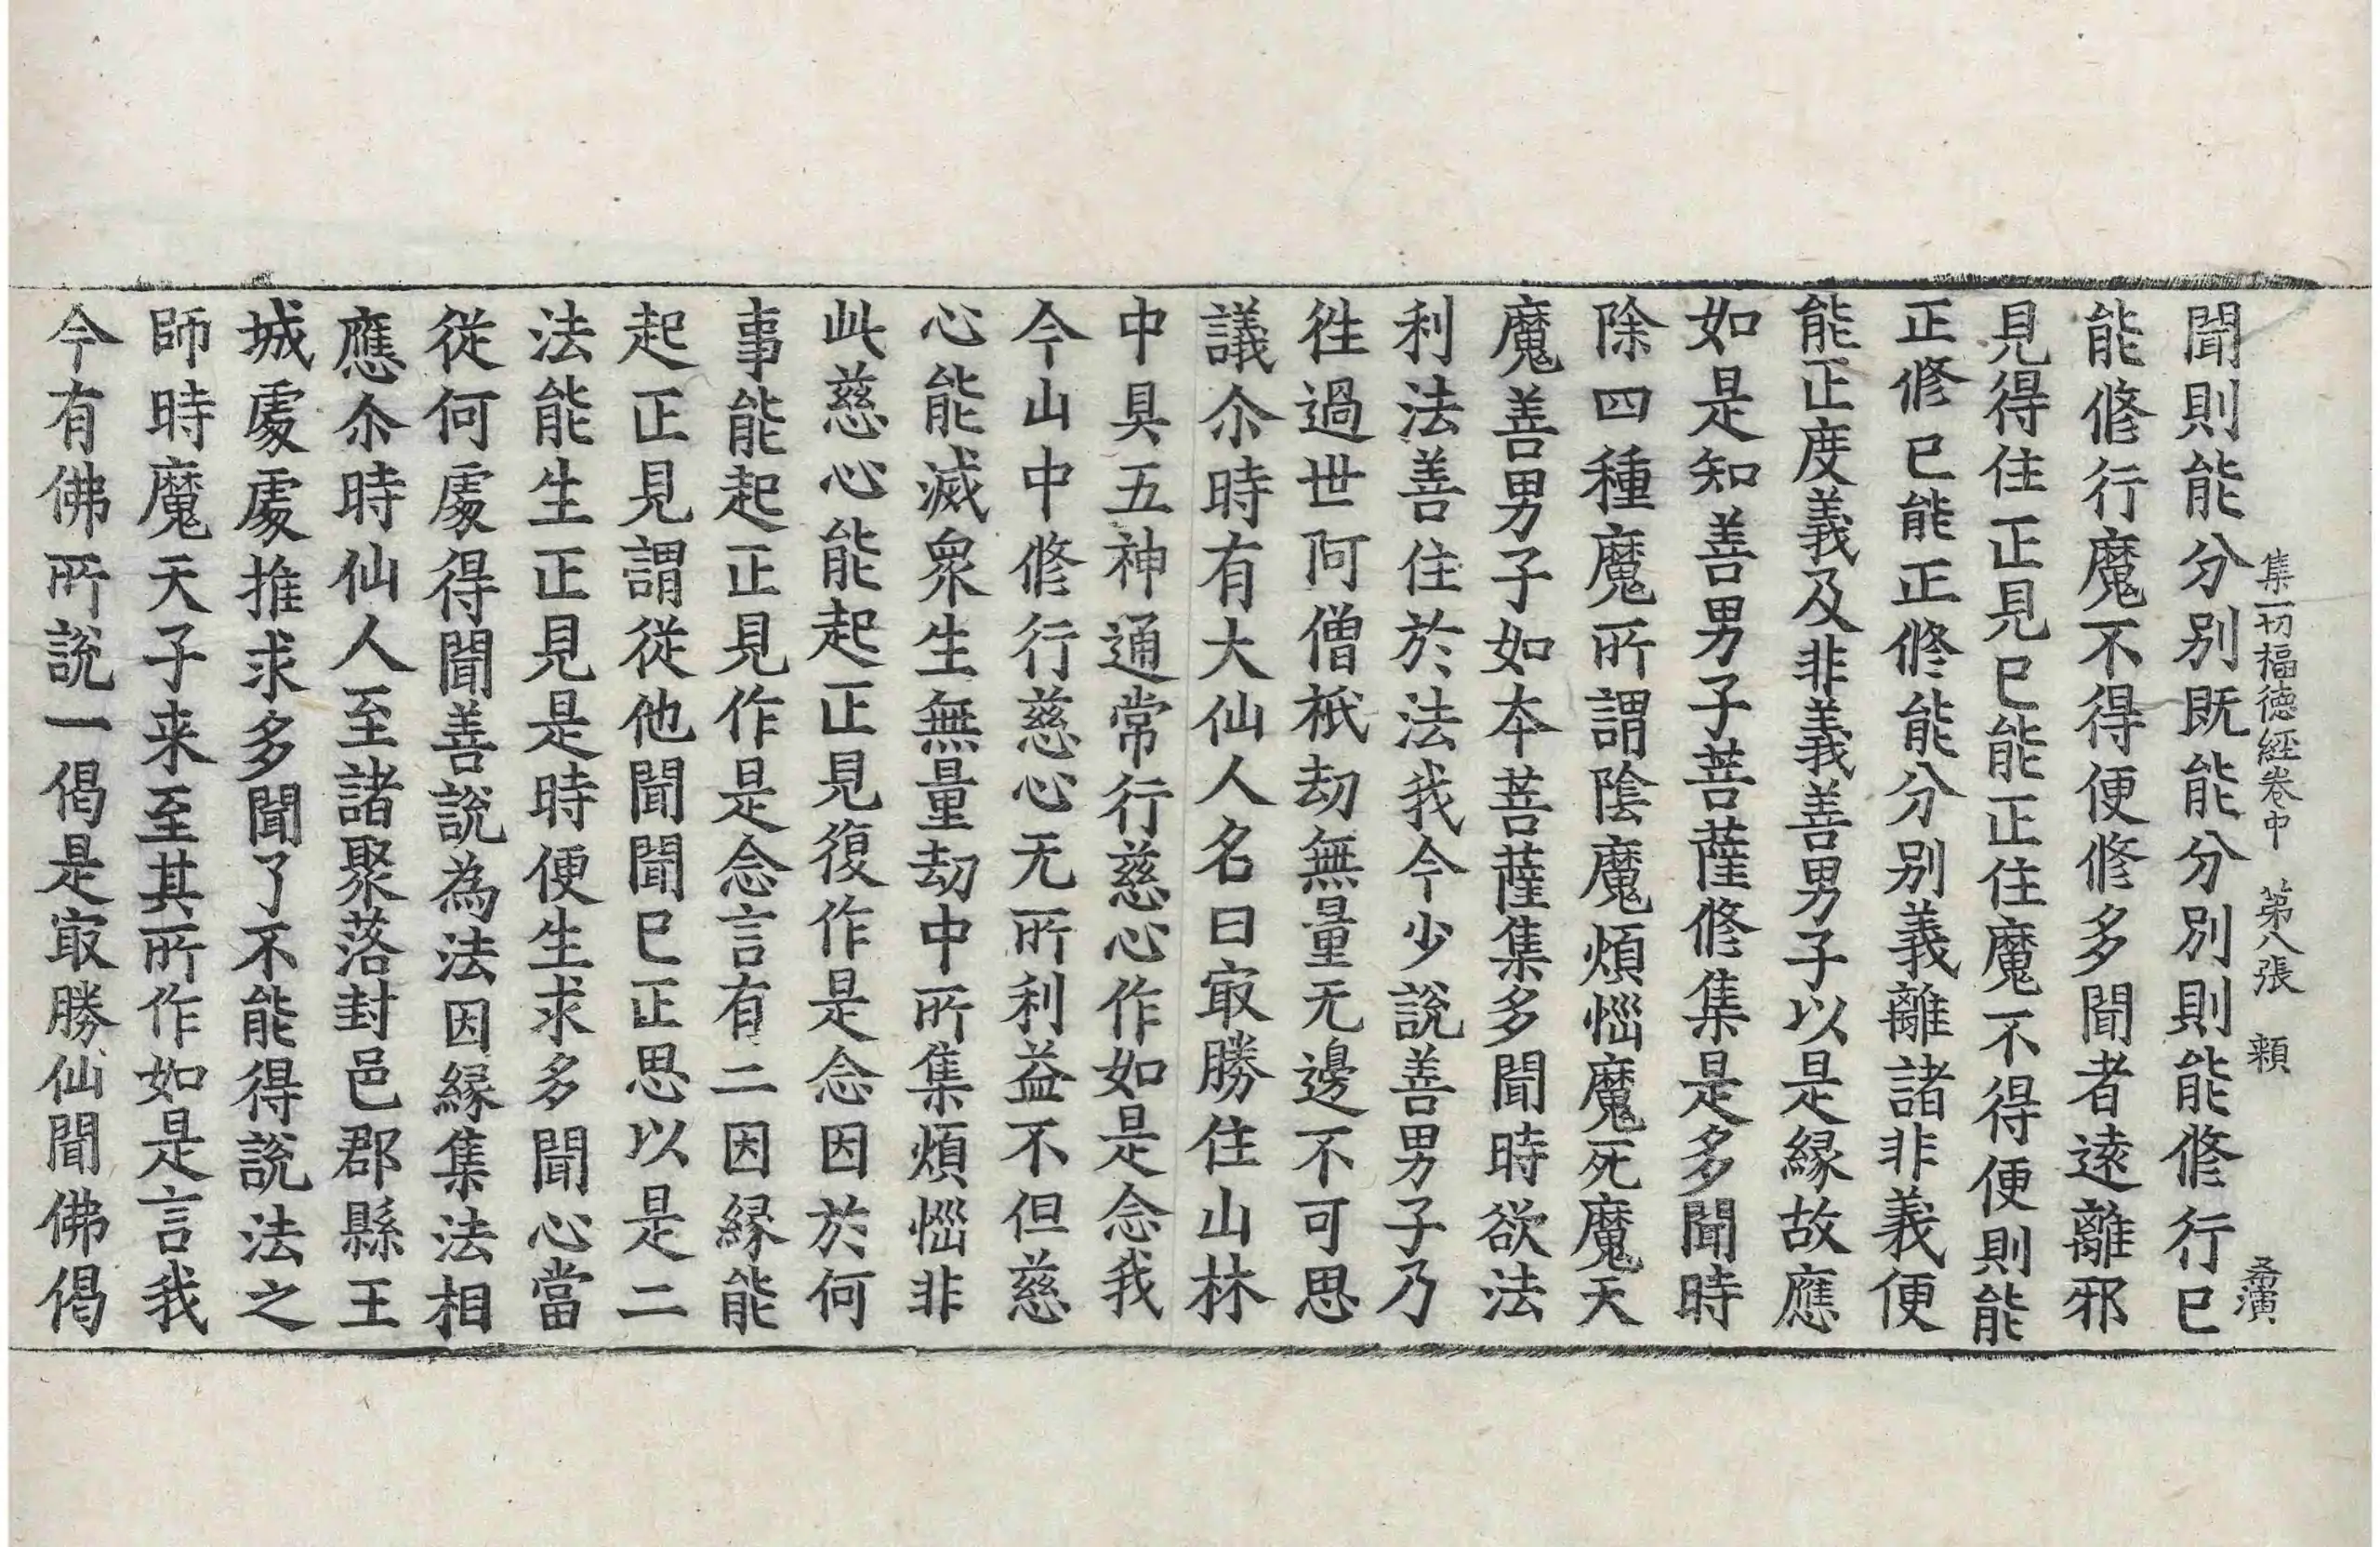 集一切福德經卷中　第八張　頼
聞則能分别既能分别則能修行巳
能修行魔不得便修多聞者逺離邪
見得住正見巳能正住魔不得便則能
正修巳能正修能分别義離諸非義便
能正度義及非義善男子以是縁故應
如是知善男子菩薩修集是多聞時
除四種魔所謂陰魔煩惱魔死魔天
魔善男子如夲菩薩集多聞時欲法
利法善住於法我今少説善男子乃
徃過世阿僧祇劫無量无邊不可思
議尒時有大仙人名曰㝡勝住山林
中具五神通常行慈心作如是念我
今山中修行慈心无所利益不但慈
心能滅衆生無量劫中所集煩惱非
此慈心能起正見復作是念因於何
事能起正見作是念言有二因縁能
起正見謂從他聞聞巳正思以是二
法能生正見是時便生求多聞心當
從何處得聞善説為法因縁集法相
應尒時仙人至諸聚落封邑郡縣王
城處處推求多聞了不能得説法之
師時魔天子来至其所作如是言我
今有佛所説一偈是㝡勝仙聞佛偈